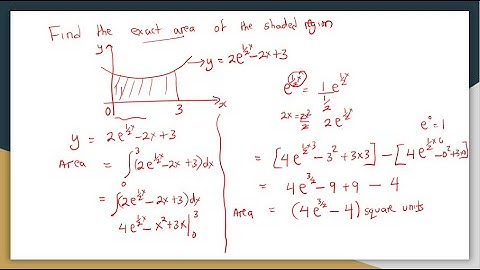 Find the exact area of the shaded region
y
y = 2e^{½x} - 2x + 3
0 3 x
y = 2e^{½x} - 2x + 3
Area = ∫₀³ (2e^{½x} - 2x + 3) dx
= ∫(2e^{½x} - 2x + 3) dx
4e^{½x} - x² + 3x |₀³
e^{½x} = 1/½ e^{½x}
2x = 2x²/2 2e^{½x}
e° = 1
= [4e^{½×3} - 3² + 3×3] - [4e^{½×0} - 0² + 3×0]
= 4e^{3/2} - 9 + 9 - 4
Area = (4e^{3/2} - 4) square units